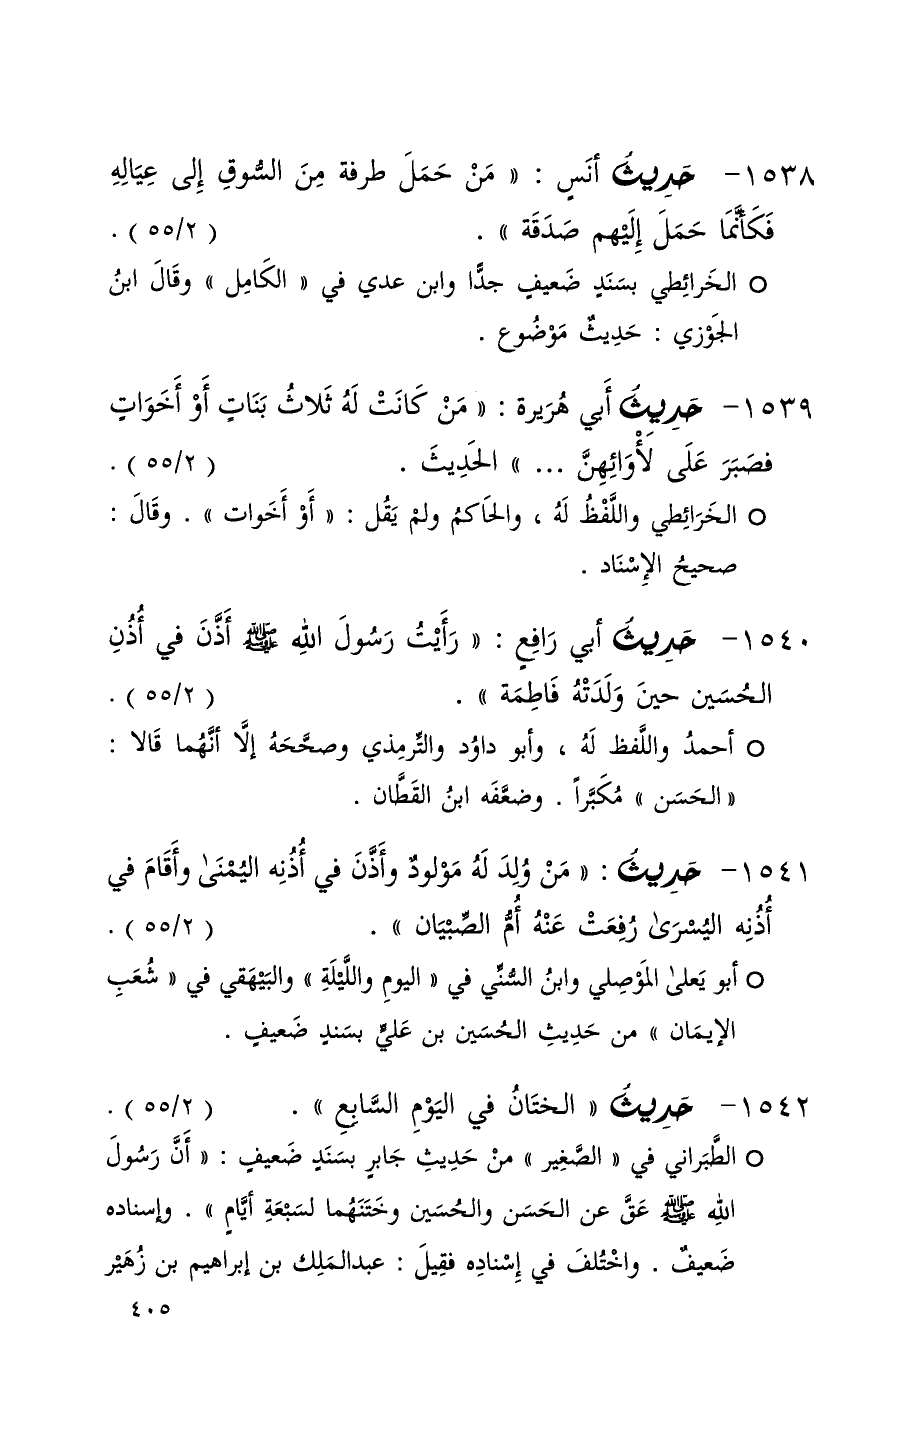 ١٥٣٨- حَدِيثُ أنَسٍ : « مَنْ حَمَلَ طرفة مِنَ السُّوقِ إِلى عِيَالِهِ
فَكَأَنَّمَا حَمَلَ إِلَيْهم صَدَقَة » . ( ٥٥/٢ ) .
○ الخَرائِطي بسَنَدٍ ضَعيفٍ جدًّا وابن عدي في « الكَامِل » وقَالَ ابنُ
الجَوْزي : حَدِيثٌ مَوْضُوع .
١٥٣٩- حَدِيثُ أَبي هُرَيرة : « مَنْ كَانَتْ لَهُ ثَلاثُ بَنَاتٍ أَوْ أَخَوَاتٍ
فصَبَرَ عَلَى لِأْوَائِهِنَّ ... » الحَدِيثَ . ( ٥٥/٢ ) .
○ الخَرَائِطي واللَّفْظُ لَهُ ، والحَاكمُ ولمْ يَقُل : « أَوْ أَخَوات » . وقَالَ :
صحيحُ الإِسْنَاد .
١٥٤٠- حَدِيثُ أبي رَافِعٍ : « رَأَيْتُ رَسُولَ اللهِ ﷺ أَذَّنَ في أُذُنِ
الحُسَين حينَ وَلَدَتْهُ فَاطِمَة » . ( ٥٥/٢ ) .
○ أحمدُ واللَّفظ لَهُ ، وأبو داوُد والتِّرمِذي وصحَّحَهُ إلَّا أنَّهُما قَالا :
« الحَسَن » مُكَبَّراً . وضعَّفَه ابنُ القَطَّان .
١٥٤١- حَدِيثُ : « مَنْ وُلِدَ لَهُ مَوْلودٌ وأَذَّنَ في أُذُنِه اليُمْنَىٰ وأَقَامَ في
أُذُنِه اليُسْرَىٰ رُفِعَتْ عَنْهُ أُمُّ الصِّبْيَان » . ( ٥٥/٢ ) .
○ أبو يَعلىٰ المَوْصِلي وابنُ السُّنِّي في « اليومِ واللَّيْلَةِ » والبَيْهَقي في « شُعَبِ
الإيمَان » من حَدِيثِ الحُسَين بن عَليٍّ بسَندٍ ضَعيفٍ .
١٥٤٢- حَدِيثُ « الختَانُ في اليَوْمِ السَّابِعِ » . ( ٥٥/٢ ) .
○ الطَّبَراني في « الصَّغِير » منْ حَدِيثِ جَابرٍ بسَنَدٍ ضَعيفٍ : « أنَّ رَسُولَ
اللهِ ﷺ عَقَّ عن الحَسَن والحُسَين وخَتَنَهُما لسَبْعَةِ أيَّامٍ » . وإسناده
ضَعيفٌ . واخْتُلفَ في إِسْنادِه فقِيلَ : عبدالمَلِك بن إبراهيم بن زُهَيْر
٤٠٥